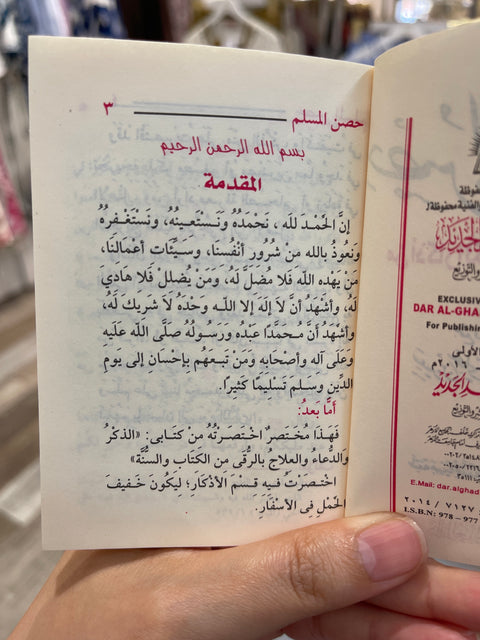 حصن المسلم ٣
بسم الله الرحمن الرحيم
المقدمة
إنَّ الحَمْدَ للَّه ، نَحْمَدُهُ وَنَسْتَعِينُهُ، وَنَسْتَغْفِرُهُ
وَنَعُوذُ بالله منْ شُرُور أَنْفُسنَا، وَسَيِّئَات أَعْمَالنَا،
مَنْ يَهْده اللهُ فَلا مُضلَّ لَهُ، وَمَنْ يُضْلل فَلا هَاديَ
لَهُ، وَأَشْهَدُ أَنْ لاَ إلَهَ إلا اللَّـه وَحْدَهُ لاَ شَريكَ لَهُ،
وَأَشْهَدُ أَنَّ مُحَمَّدًا عَبْدُه وَرَسُولُهُ صَلَّى اللهُ عَلَيْهِ
وَعَلَى آله وأَصْحَابه وَمَنْ تَبعَهُم بإحْسَان إلى يَومِ
الدِّين وَسَلم تَسْليمًا كَثيرًا.
أَمَّا بَعدُ:
فَهَذَا مُخْتَصَرٌ اخْتَصَرْتُهُ منْ كتَابى: «الذكْرُ
والدُّعاءُ والعلاجُ بالرُّقَى من الكتَاب والسُّنَّة»
اخْتصَرتُ فيه قسْمَ الأذْكَارِ؛ ليَكُونَ خَفيفَ
الحَمْل فى الأسْفَارِ.
EXCLUSIVE
DAR AL-GHA
For Publishing
E.Mail: dar.alghad
٢٠١٤ / ٧١٢٧
I.S.B.N: 978 – 977